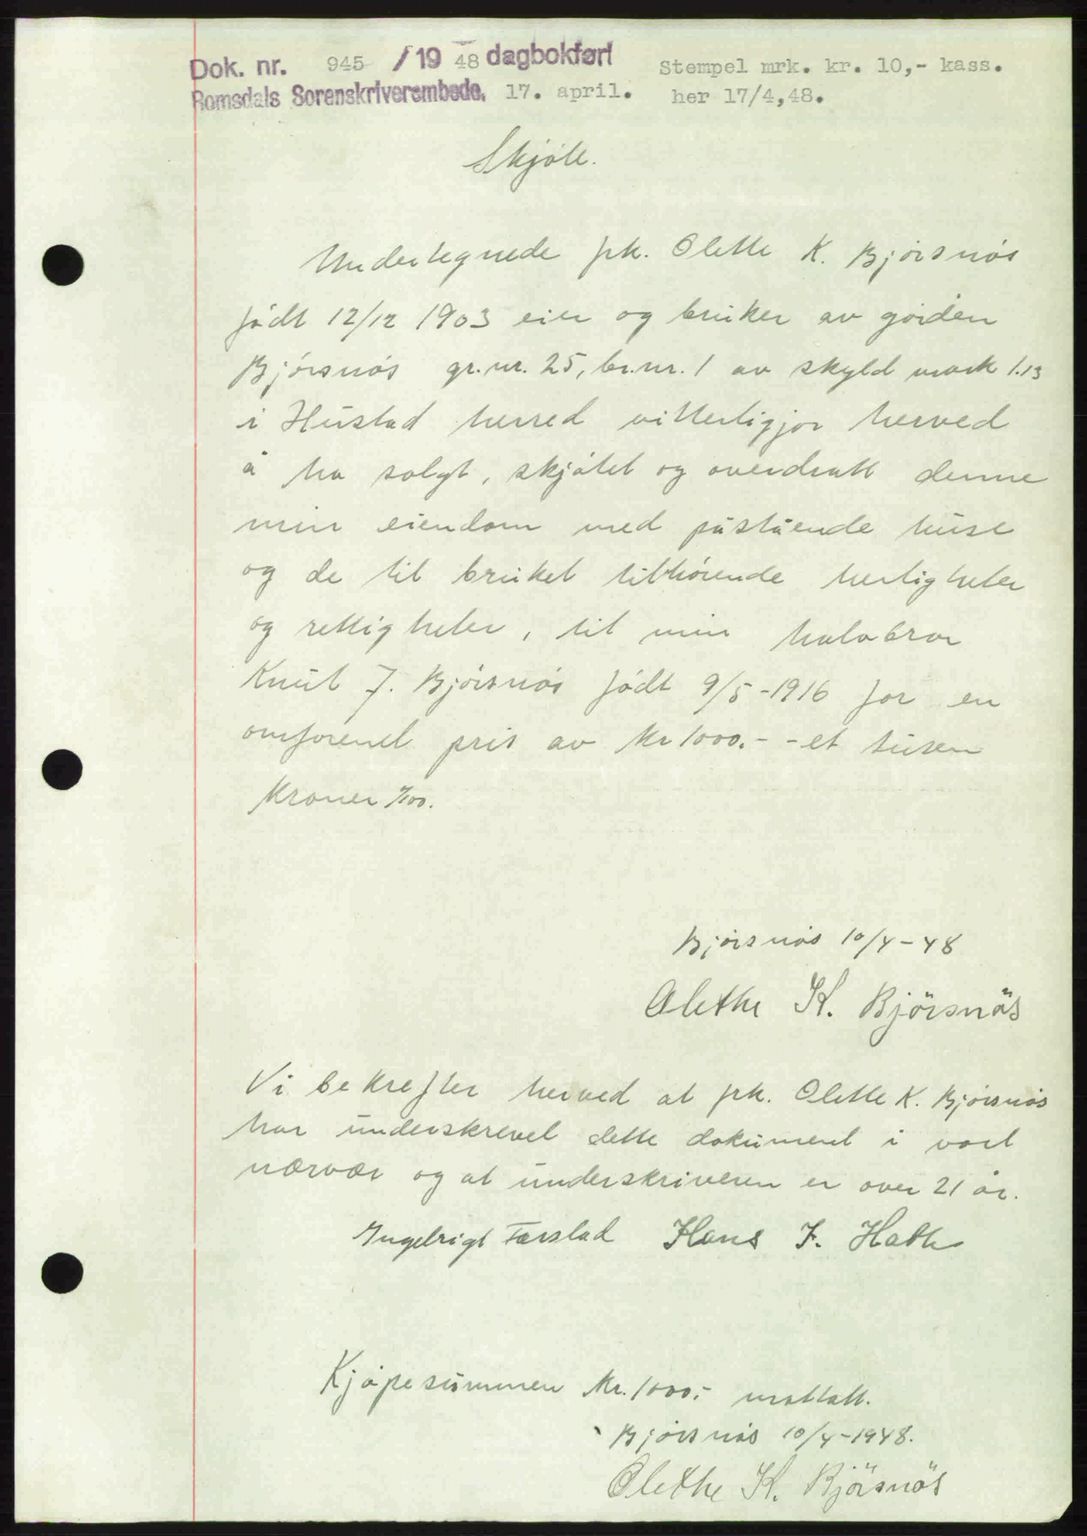 Dok. nr. 945 / 19 48 dagbokført Stempel mrk. kr. 10,- kass.
Romsdals Sorenskriverembede. 17. april. her 17/4,48.
Skjöte.
Undertegnede frk. Olette K. Björsnös
födt 12/12 1903 eier og bruker av garden
Björsnös gr.nr. 25, br.nr. 1 av skyld mark 1.13
i Hustad herred vitterligjör herved
å ha solgt, skjötet og overdratt denne
min eiendom med påstående huse
og de til bruket tilhörende herligheter
og rettigheter, til min halvbror
Knut J. Björsnös födt 9/5-1916 for en
omforenet pris av kr 1000.- - et tusen
kroner %00.
Björsnös 10/4-48
Olethe K. Björsnös
Vi bekrefter herved at frk. Olette K. Björsnös
har underskrevet dette dokument i vort
nærvær og at underskriveren er over 21 år.
Ingebrigt Farstad Hans F. Hatle
Kjöpesummen kr. 1000.- mottatt.
Björsnös 10/4-1948.
Olethe K. Björsnös